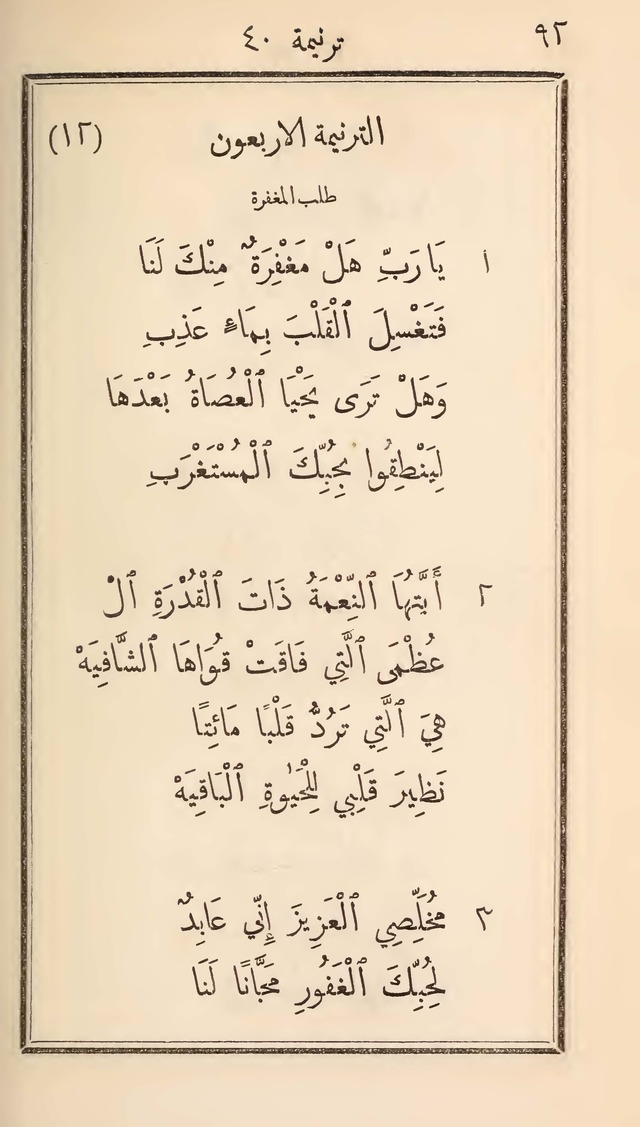 ٩٢
ترنيمة ٤٠
الترنيمة الاربعون (١٢)
طلب المغفرة
١ يَا رَبِّ هَلْ مَغْفِرَةٌ مِنْكَ لَنَا
فَتَغْسِلَ ٱلْقَلْبَ بِمَاءٍ عَذِبِ
وَهَلْ تَرَى يَحْيَا ٱلْعُصَاةُ بَعْدَهَا
لِيَنْطِقُوا بِحُبِّكَ ٱلْمُسْتَغْرَبِ
٢ أَيَّتُهَا ٱلنِّعْمَةُ ذَاتَ ٱلْقُدْرَةِ ٱلْ
عُظْمَى ٱلَّتِي فَاقَتْ قُوَاهَا ٱلشَّافِيَهْ
هِيَ ٱلَّتِي تَرُدُّ قَلْبًا مَائِتًا
نَظِيرَ قَلْبِي لِلْحَيٰوةِ ٱلْبَاقِيَهْ
٣ مُخَلِّصِي ٱلْعَزِيزَ إِنِّي عَابِدٌ
لِحُبِّكَ ٱلْغَفُورِ مَجَّانًا لَنَا